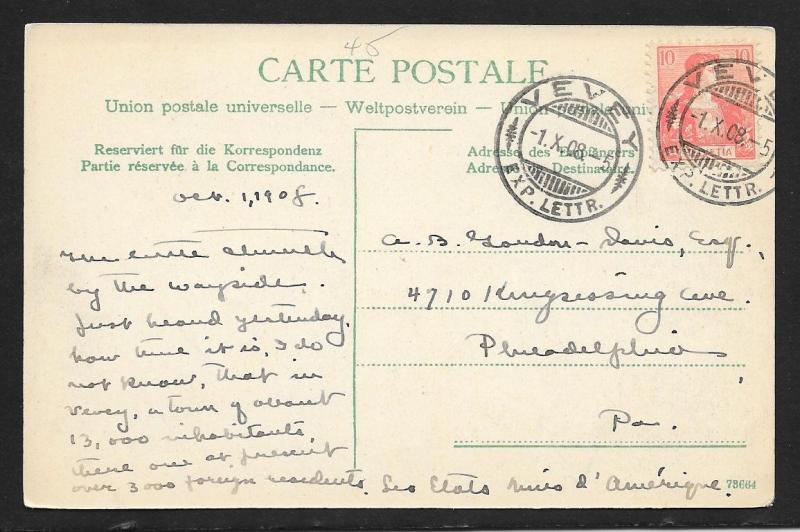 45
CARTE POSTALE
Union postale universelle — Weltpostverein — Union postale universelle
Reserviert für die Korrespondenz
Partie réservée à la Correspondance.
Adresse des Empfängers
Adresse du Destinataire.
10 10
HELVETIA
VEVEY
-1.X.08.-5
EXP. LETTR.
VEVEY
-1.X.08.-5
EXP. LETTR.
Oct. 1, 1908.
little church
by the wayside.
Just heard yesterday,
how true it is, I do
not know, that in
Vevey, a town of about
13,000 inhabitants,
there are at present
over 3000 foreign residents.
A. B. Gordon-Davis, Esq.,
4710 Kingsessing Ave.
Philadelphia
Pa.
Les Etats Unis d'Amérique.
73664